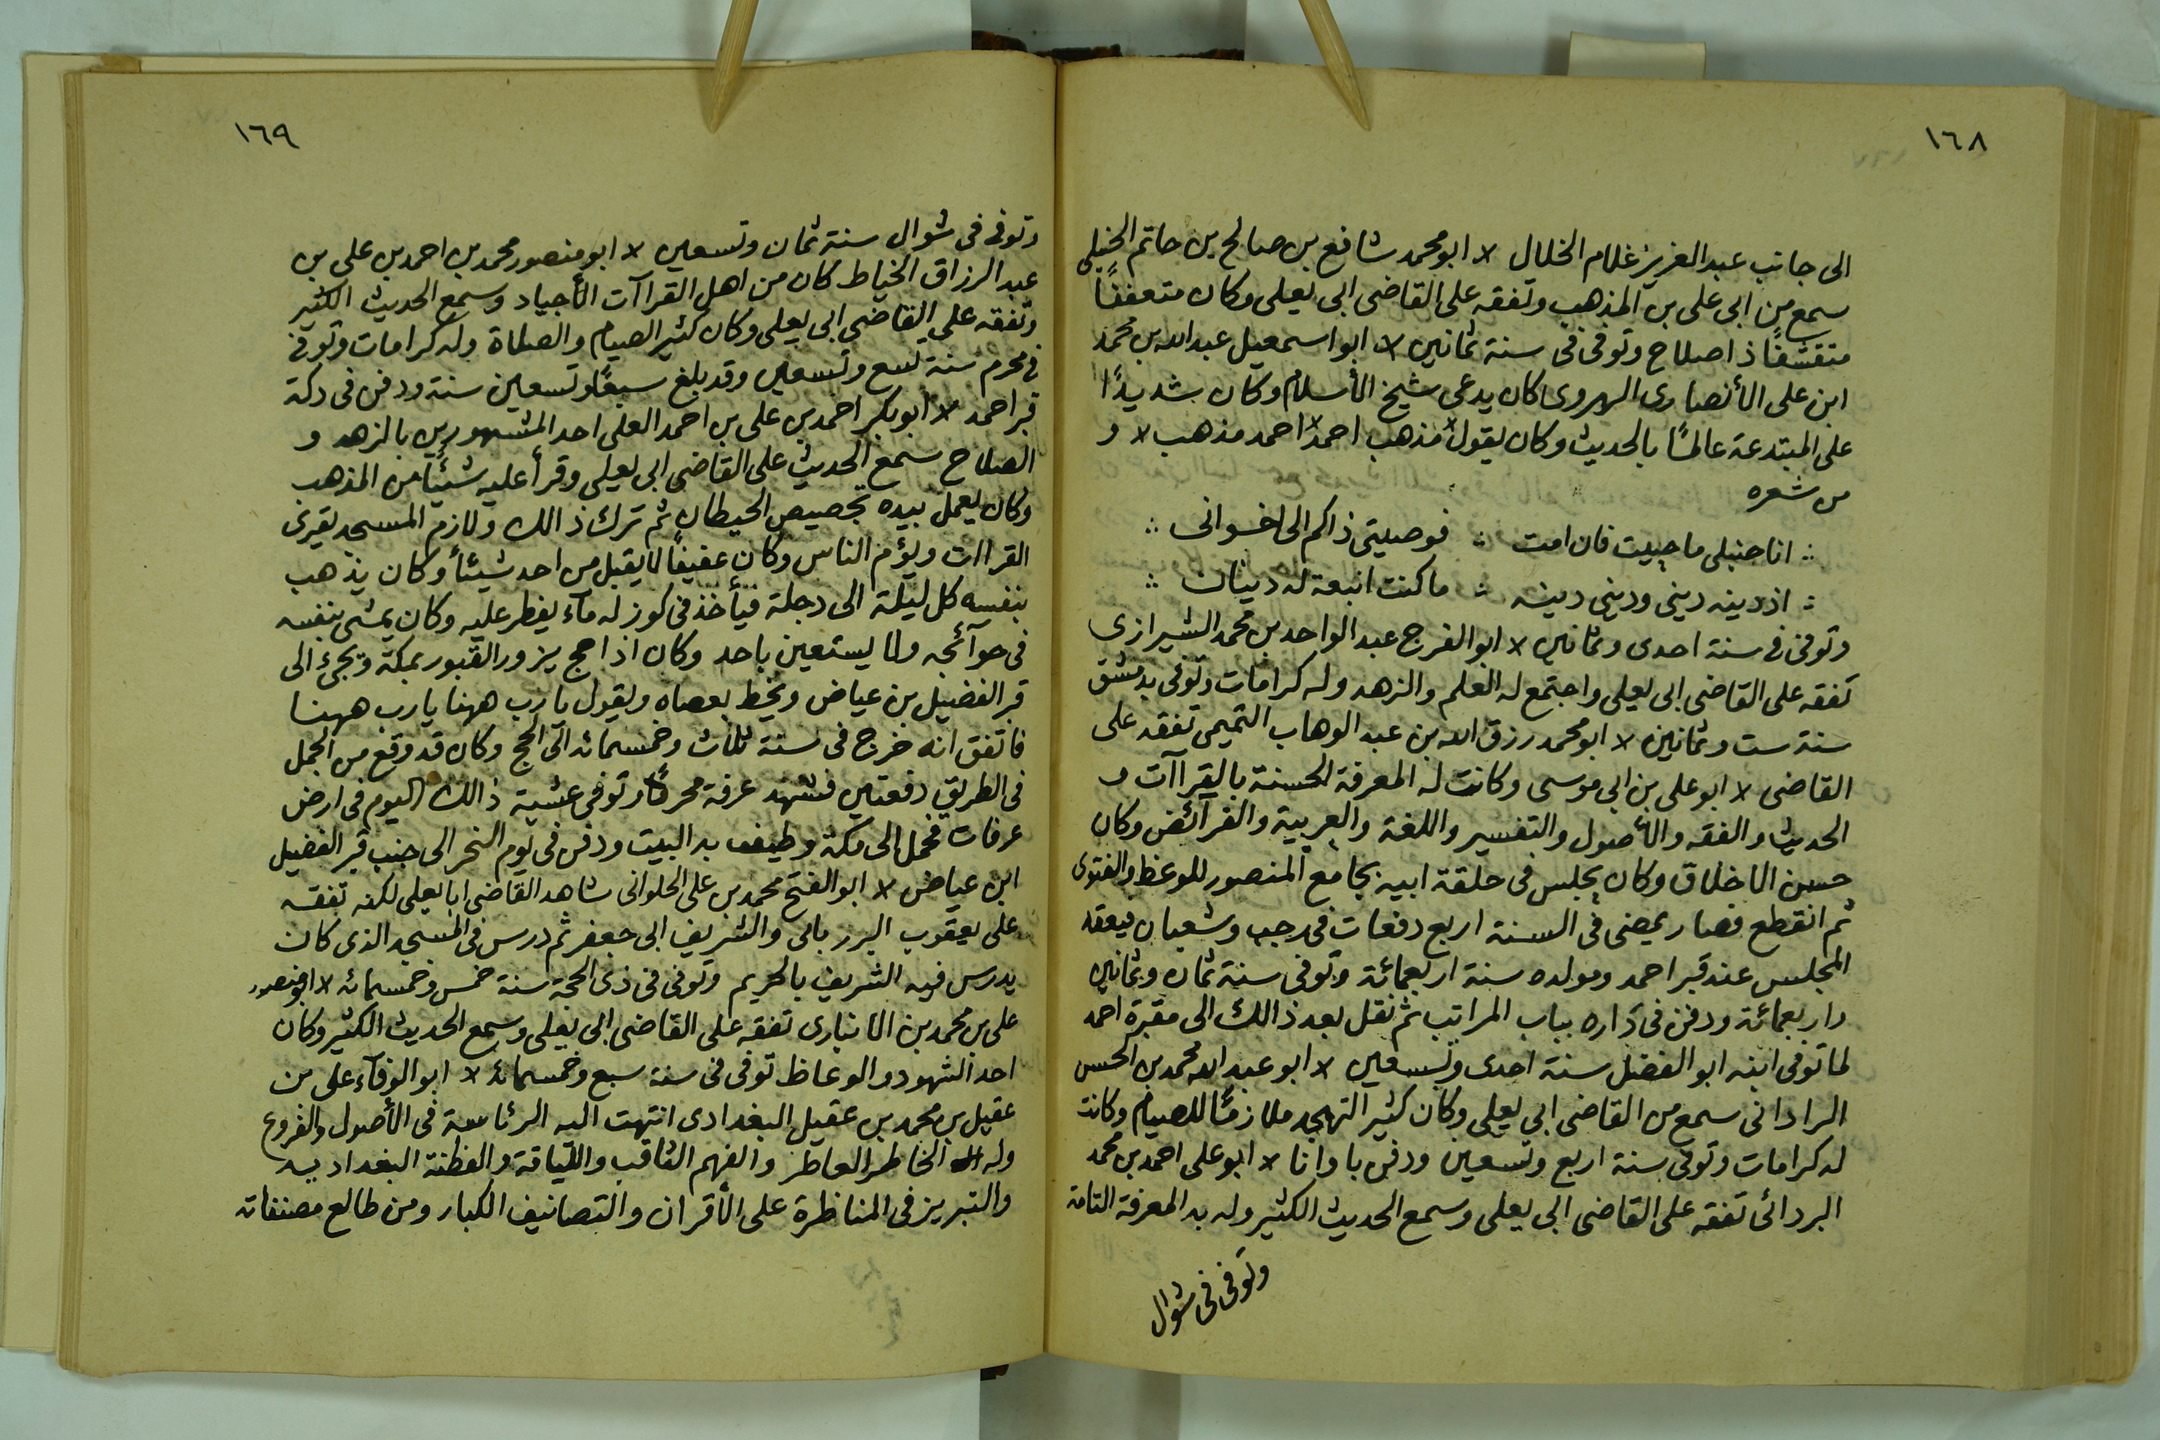 ١٦٨
الى جانب عبد العزيز غلام الخلال × ابو محمد شافع بن صالح بن حاتم الحنبلى
سمع من ابى على بن المذهب وتفقه على القاضى ابى يعلى وكان متعففاً
متقشفاً ذا صلاح وتوفى فى سنة ثمانين × ابو اسمعيل عبد الله بن محمد
ابن على الأنصارى الهروى كان يدعى شيخ الأسلام وكان شديدًا
على المبتدعة عالمًا بالحديث وكان يقول × مذهب احمد × احمد مذهب × و
من شعره
∴ انا حنبلى ما حييت فان امت ∴ فوصيتى ذاكم الى اخوانى ∴
∴ اذ دينه دينى ودينى دينه ∴ ما كنت اتبعة له دينان ∴
وتوفى فى سنة احدى وثمانين × ابو الفرج عبد الواحد بن محمد الشيرازى
تفقه على القاضى ابى يعلى واجتمع له العلم والزهد وله كرامات وتوفى بدمشق
سنة ست وثمانين × ابو محمد رزق الله بن عبد الوهاب التميمى تفقه على
القاضى × ابو على بن ابى موسى وكانت له المعرفة الحسنة بالقراآت و
الحديث والفقه والأصول والتفسير واللغة والعربية والفرآئض وكان
حسن الاخلاق وكان يجلس فى حلقة ابيه بجامع المنصور للوعظ والفتوى
ثم انقطع فصار يمضى فى السنة اربع دفعات فى رجب وشعبان فيعقد
المجلس عند قبر احمد ومولده سنة اربعمائة وتوفى سنة ثمان وثمانين
واربعمائة ودفن فى داره بباب المراتب ثم نقل بعد ذالك الى مقبرة احمد
لما توفى ابنه ابو الفضل سنة احدى وتسعين × ابو عبد الله محمد بن الحسن
الراذانى سمع من القاضى ابى يعلى وكان كثير التهجد ملازمًا للصيام وكانت
له كرامات وتوفى سنة اربع وتسعين ودفن باوانا × ابو على احمد بن محمد
البردانى تفقه على القاضى ابى يعلى وسمع الحديث الكثير وله به المعرفة التامة
وتوفى فى شوال
١٦٩
وتوفى فى شوال سنة ثمان وتسعين × ابو منصور محمد بن احمد بن على بن
عبد الرزاق الخياط كان من اهل القراآت الأجياد وسمع الحديث الكثير
وتفقه على القاضى ابى يعلى وكان كثير الصيام والصلاة وله كرامات وتوفى
فى محرم سنة تسع وتسعين وقد بلغ سبعًا وتسعين سنة ودفن فى دكة
قبر احمد × ابو بكر احمد بن على بن احمد العلى احد المشهورين بالزهد و
الصلاح سمع الحديث على القاضى ابى يعلى وقرأ عليه شيئًا من المذهب
وكان يعمل بيده تجصيص الحيطان ثم ترك ذالك ولازم المسجد يقرئ
القراات ويؤم الناس وكان عفيفًا لا يقبل من احد شيئًا وكان يذهب
بنفسه كل ليلة الى دجلة فيأخذ فى كوز له مآء يفطر عليه وكان يمشى بنفسه
فى حوآئجه ولا يستعين باحد وكان اذا حج يزور القبور بمكة ويجئ الى
قبر الفضيل بن عياض ويخط بعصاه ويقول يارب ههنا يارب ههنا
فاتفق انه خرج فى سنة ثلاث وخمسمائة الى الحج وكان قد وقع من الجمل
فى الطريق دفعتين فشهد عرفة محرمًا وتوفى عشية ذالك اليوم فى ارض
عرفات فحمل الى مكة وطيف به البيت ودفن فى يوم النحر الى جنب قبر الفضيل
ابن عياض × ابو الفتح محمد بن على الحلوانى شاهد القاضى ابا يعلى لكنه تفقه
على يعقوب البرزبانى والشريف ابى جعفر ثم درس فى المسجد الذى كان
يدرس فيه الشريف بالحريم وتوفى فى ذى الحجة سنة خمس وخمسمائة × ابو منصور
على بن محمد بن الانبارى تفقه على القاضى ابى يعلى وسمع الحديث الكثير وكان
احد الشهود والوعاظ توفى فى سنة سبع وخمسمائة × ابو الوفآء على بن
عقيل بن محمد بن عقيل البغدادى انتهت اليه الرئاسة فى الأصول والفروع
وله الخاطر العاطر والفهم الثاقب واللياقة والفطنة البغدادية
والتبريز فى المناظرة على الأقران والتصانيف الكبار ومن طالع مصنفاته